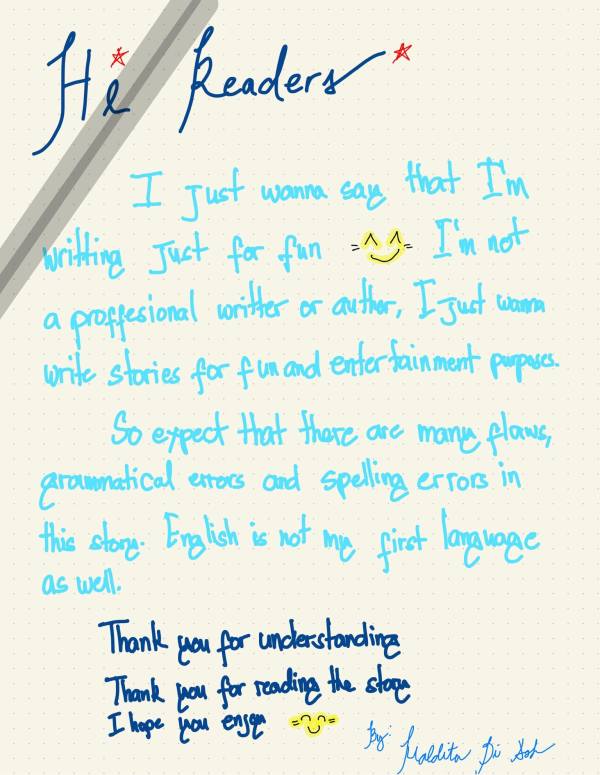 Hi Readers
I just wanna say that I'm
writting just for fun I'm not
a proffesional writter or author, I just wanna
write stories for fun and entertainment purposes.
So expect that there are many flaws,
grammatical errors and spelling errors in
this story. English is not my first language
as well.
Thank you for understanding
Thank you for reading the story
I hope you enjoy
By: Maldita